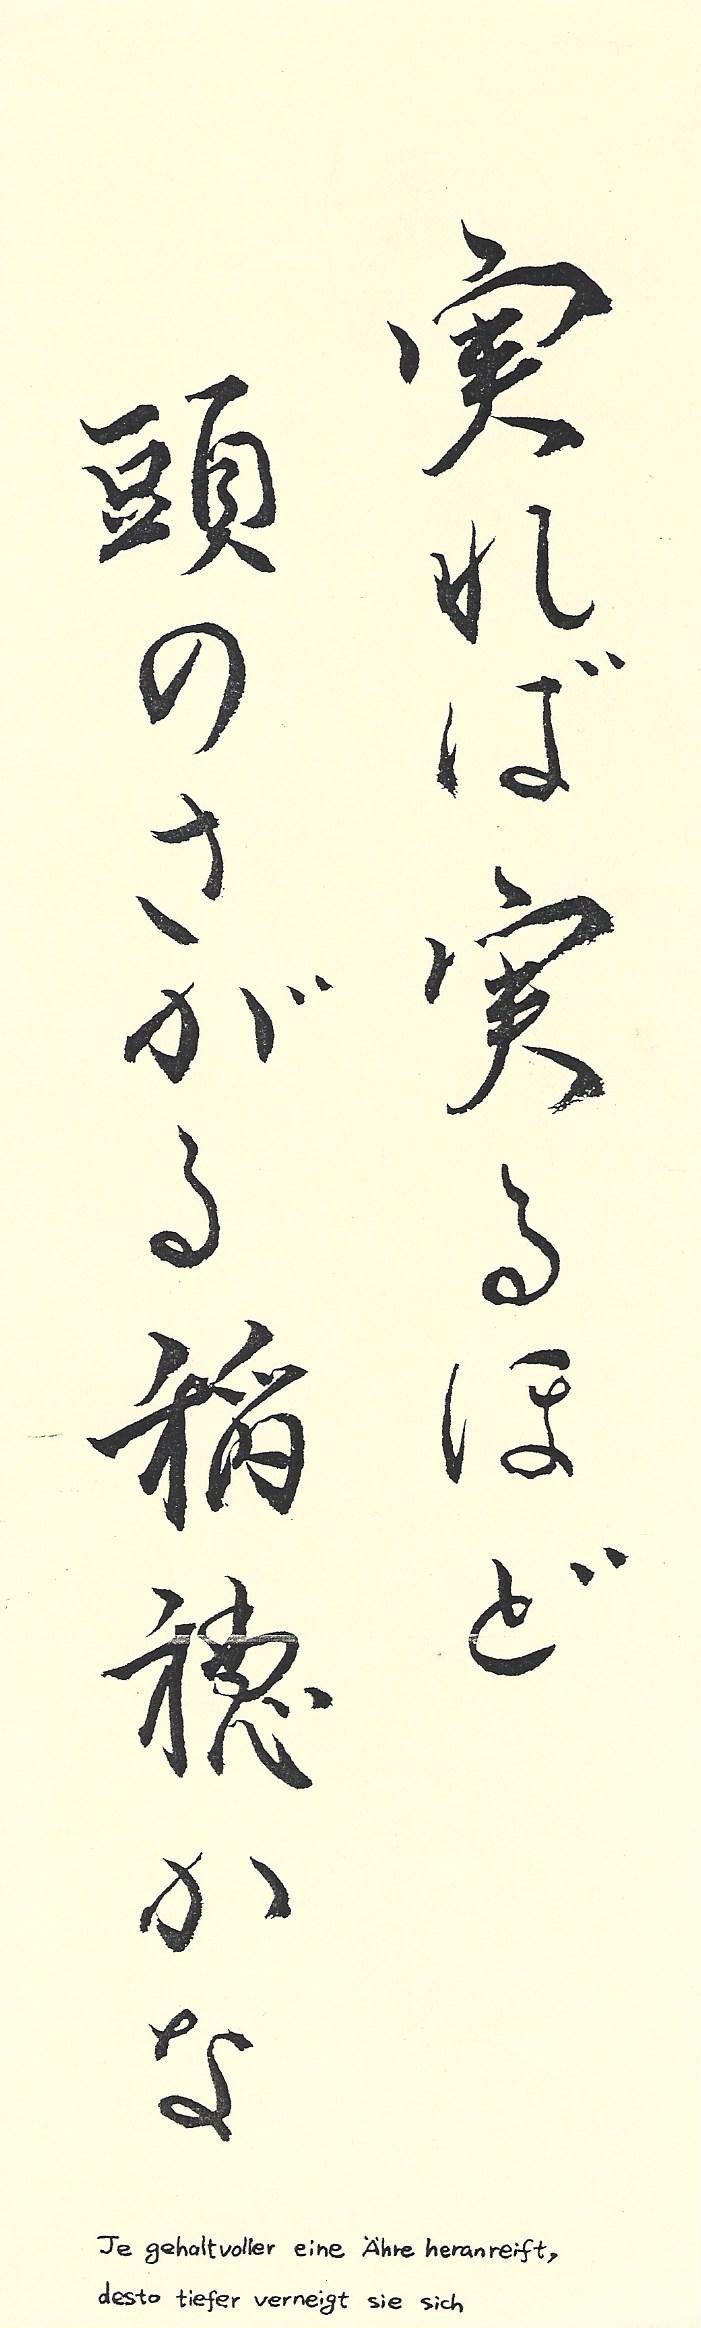 実れば実るほど
頭のさがる稲穂かな
Je gehaltvoller eine Ähre heranreift,
desto tiefer verneigt sie sich